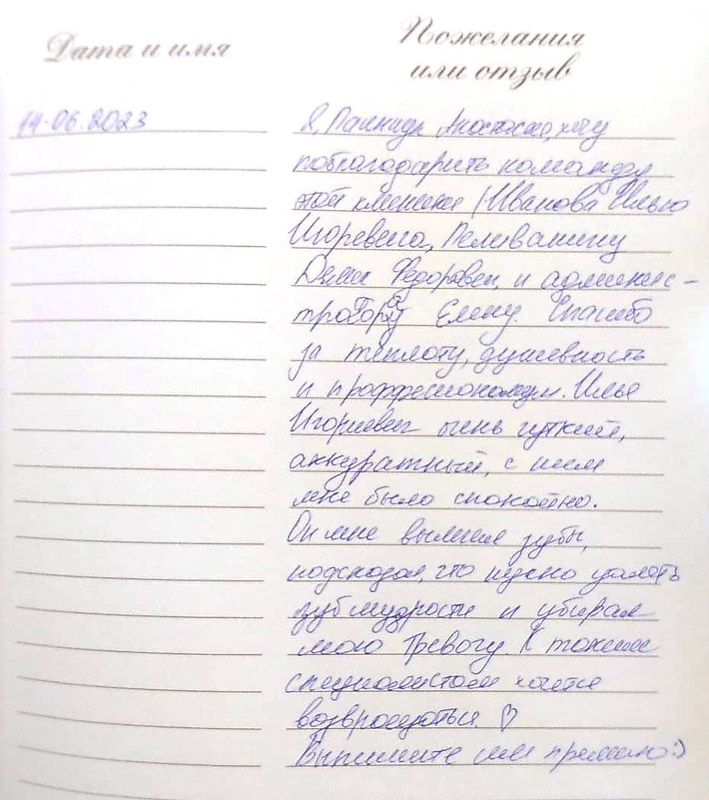 Дата и имя
Пожелания
или отзыв
14.06.2023
Я, Анастасия, хочу
поблагодарить команду
этой клиники (Иванова Илью
Игоревича,
Федоровен и админис-
тратора Елену. Спасибо
за теплоту, душевность
и проффесионализм. Илья
Игориевич очень чуткий,
аккуратный, с ним
мне было спокойно.
Он мне вылечил зубы,
подсказал, что нужно удалять
зуб мудрости и убирал
мою тревогу. К таким
специалистам хочется
возвращаться. ♡
Выпишите им премию:)